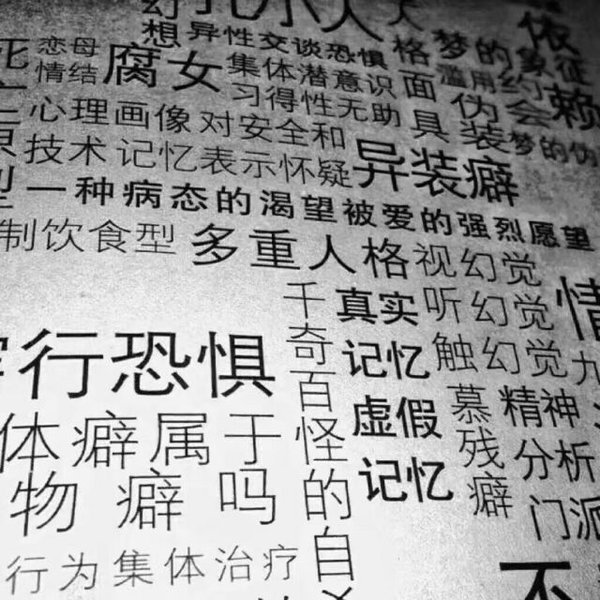 幻
想
异性交谈恐惧
格
梦的象征
依
赖
恋母
情结
腐女
集体潜意识
习得性无助
面
具
滥用
伪
装
约
会
梦的伪
心理画像
对安全和
技术
记忆表示怀疑
异装癖
一种病态的渴望被爱的强烈愿望
制饮食型
多重人格
视幻觉
千奇百怪的自
真实
记忆
听幻觉
触幻觉
情
行恐惧
虚假
记忆
慕残癖
精神
分析
门派
体癖属于
物癖吗
行为集体治疗
不